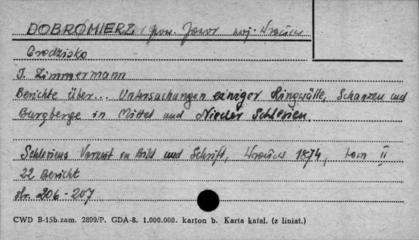 DOBROMIERZ, pow. Jawor woj. Wrocław
Grodzisko
J. Zimmermann
Berichte über... Untersuchungen einiger Ringwälle, Schanzen und
Burgberge in Mittel und Nieder Schlesien.
Schlesiens Vorzeit in Bild und Schrift, Wrocław 1874, tom II
22 Bericht
str. 206-207
CWD B-15b.zam. 2899/P. GDA-8. 1.000.000. karton b. Karta katal. (z liniat.)